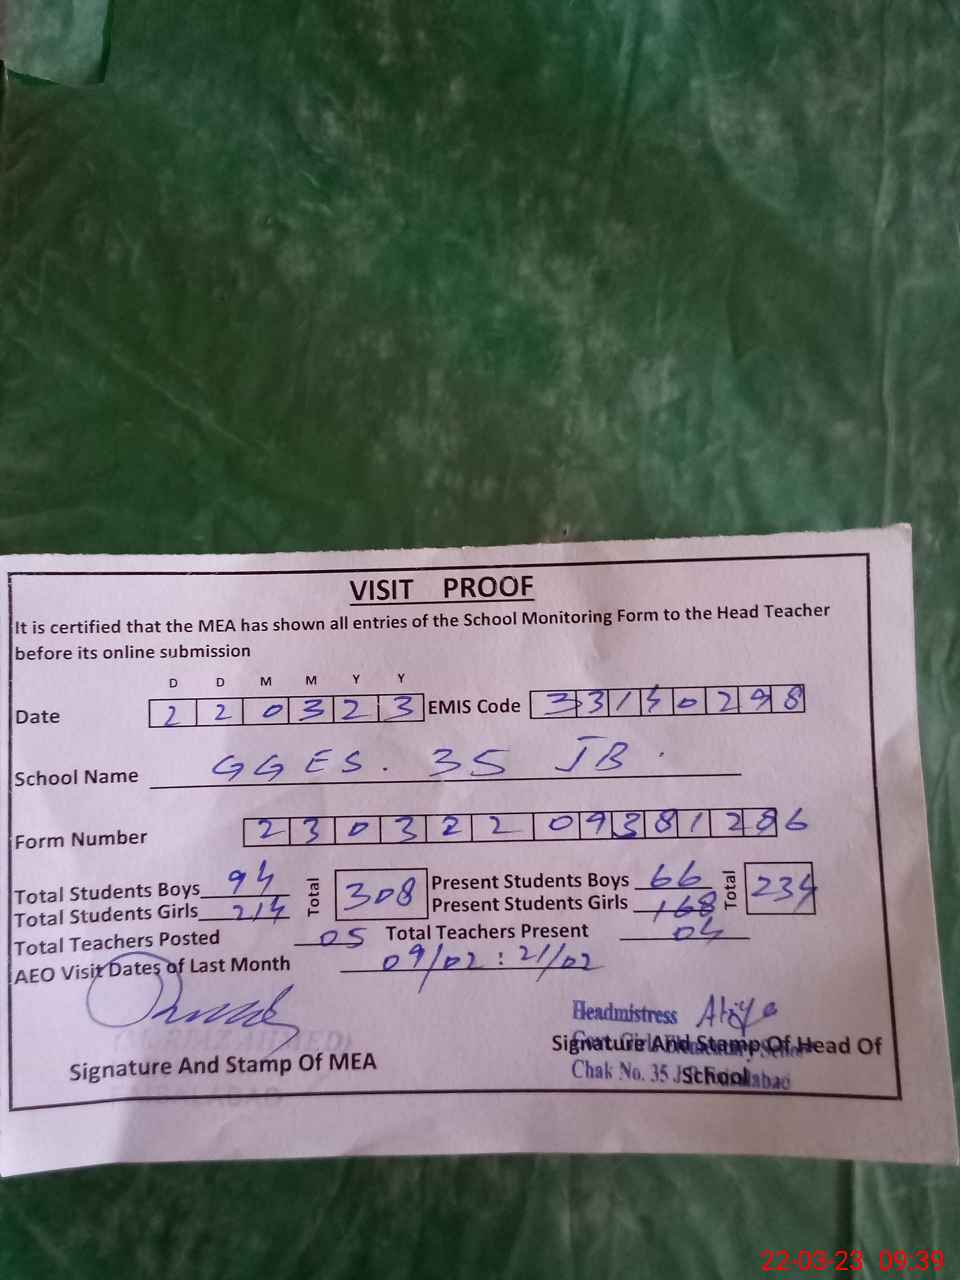 VISIT PROOF
It is certified that the MEA has shown all entries of the School Monitoring Form to the Head Teacher
before its online submission
D D M M Y Y
Date 2 2 0 3 2 3 EMIS Code 3 3 1 4 0 2 9 8
School Name GGES. 35 JB.
Form Number 2 3 0 3 2 2 0 9 3 8 1 2 8 6
Total Students Boys 94 Total 308 Present Students Boys 66 Total 234
Total Students Girls 214 Present Students Girls 168
Total Teachers Posted 05 Total Teachers Present 04
AEO Visit Dates of Last Month 09/02 : 21/02
Headmistress
Signature And Stamp Of MEA Signature And Stamp Of Head Of
School
Chak No. 35
22-03-23 09:39